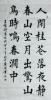 人閒桂花落夜静
春山空月出驚山
鳥時鳴春澗中